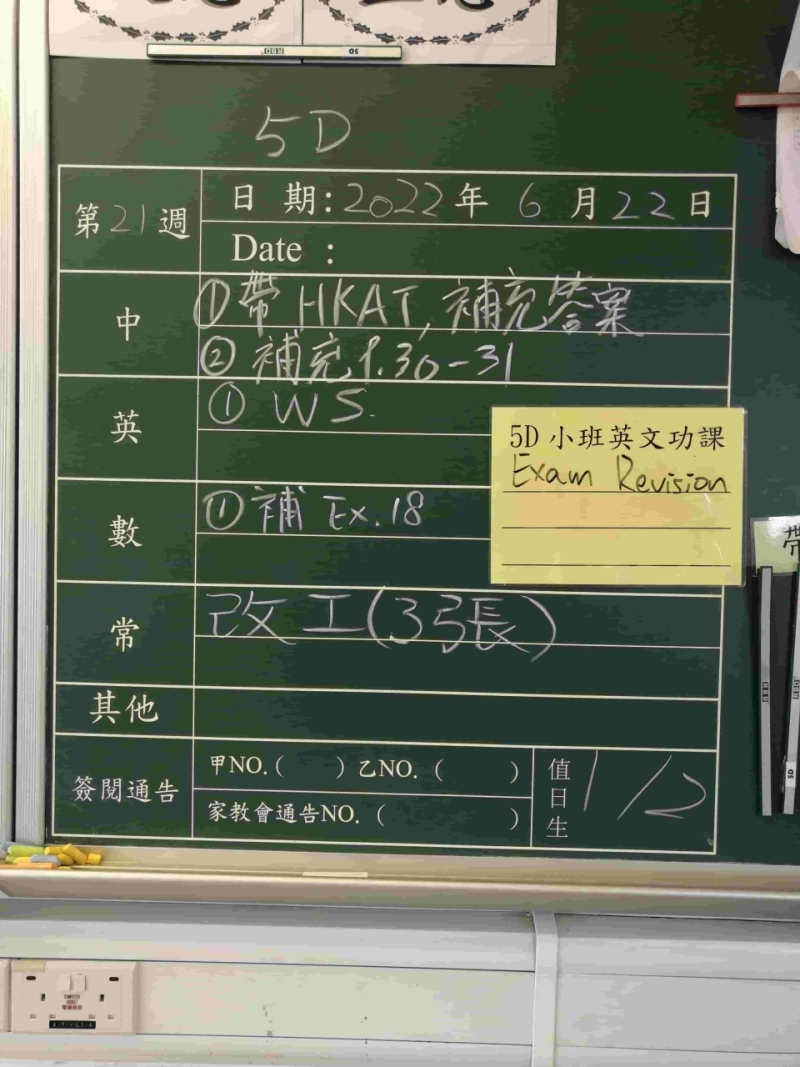 5D
第21週
日 期:2022年 6 月22日
Date :
中
①帶 HKAT, 補充答案
②補充P.30-31
英
① WS.
5D 小班英文功課
Exam Revision
數
①補 Ex.18
常
改工(3張)
其他
簽閱通告
甲NO.( ) 乙NO. ( )
家教會通告NO. ( )
值日生
1 / 2